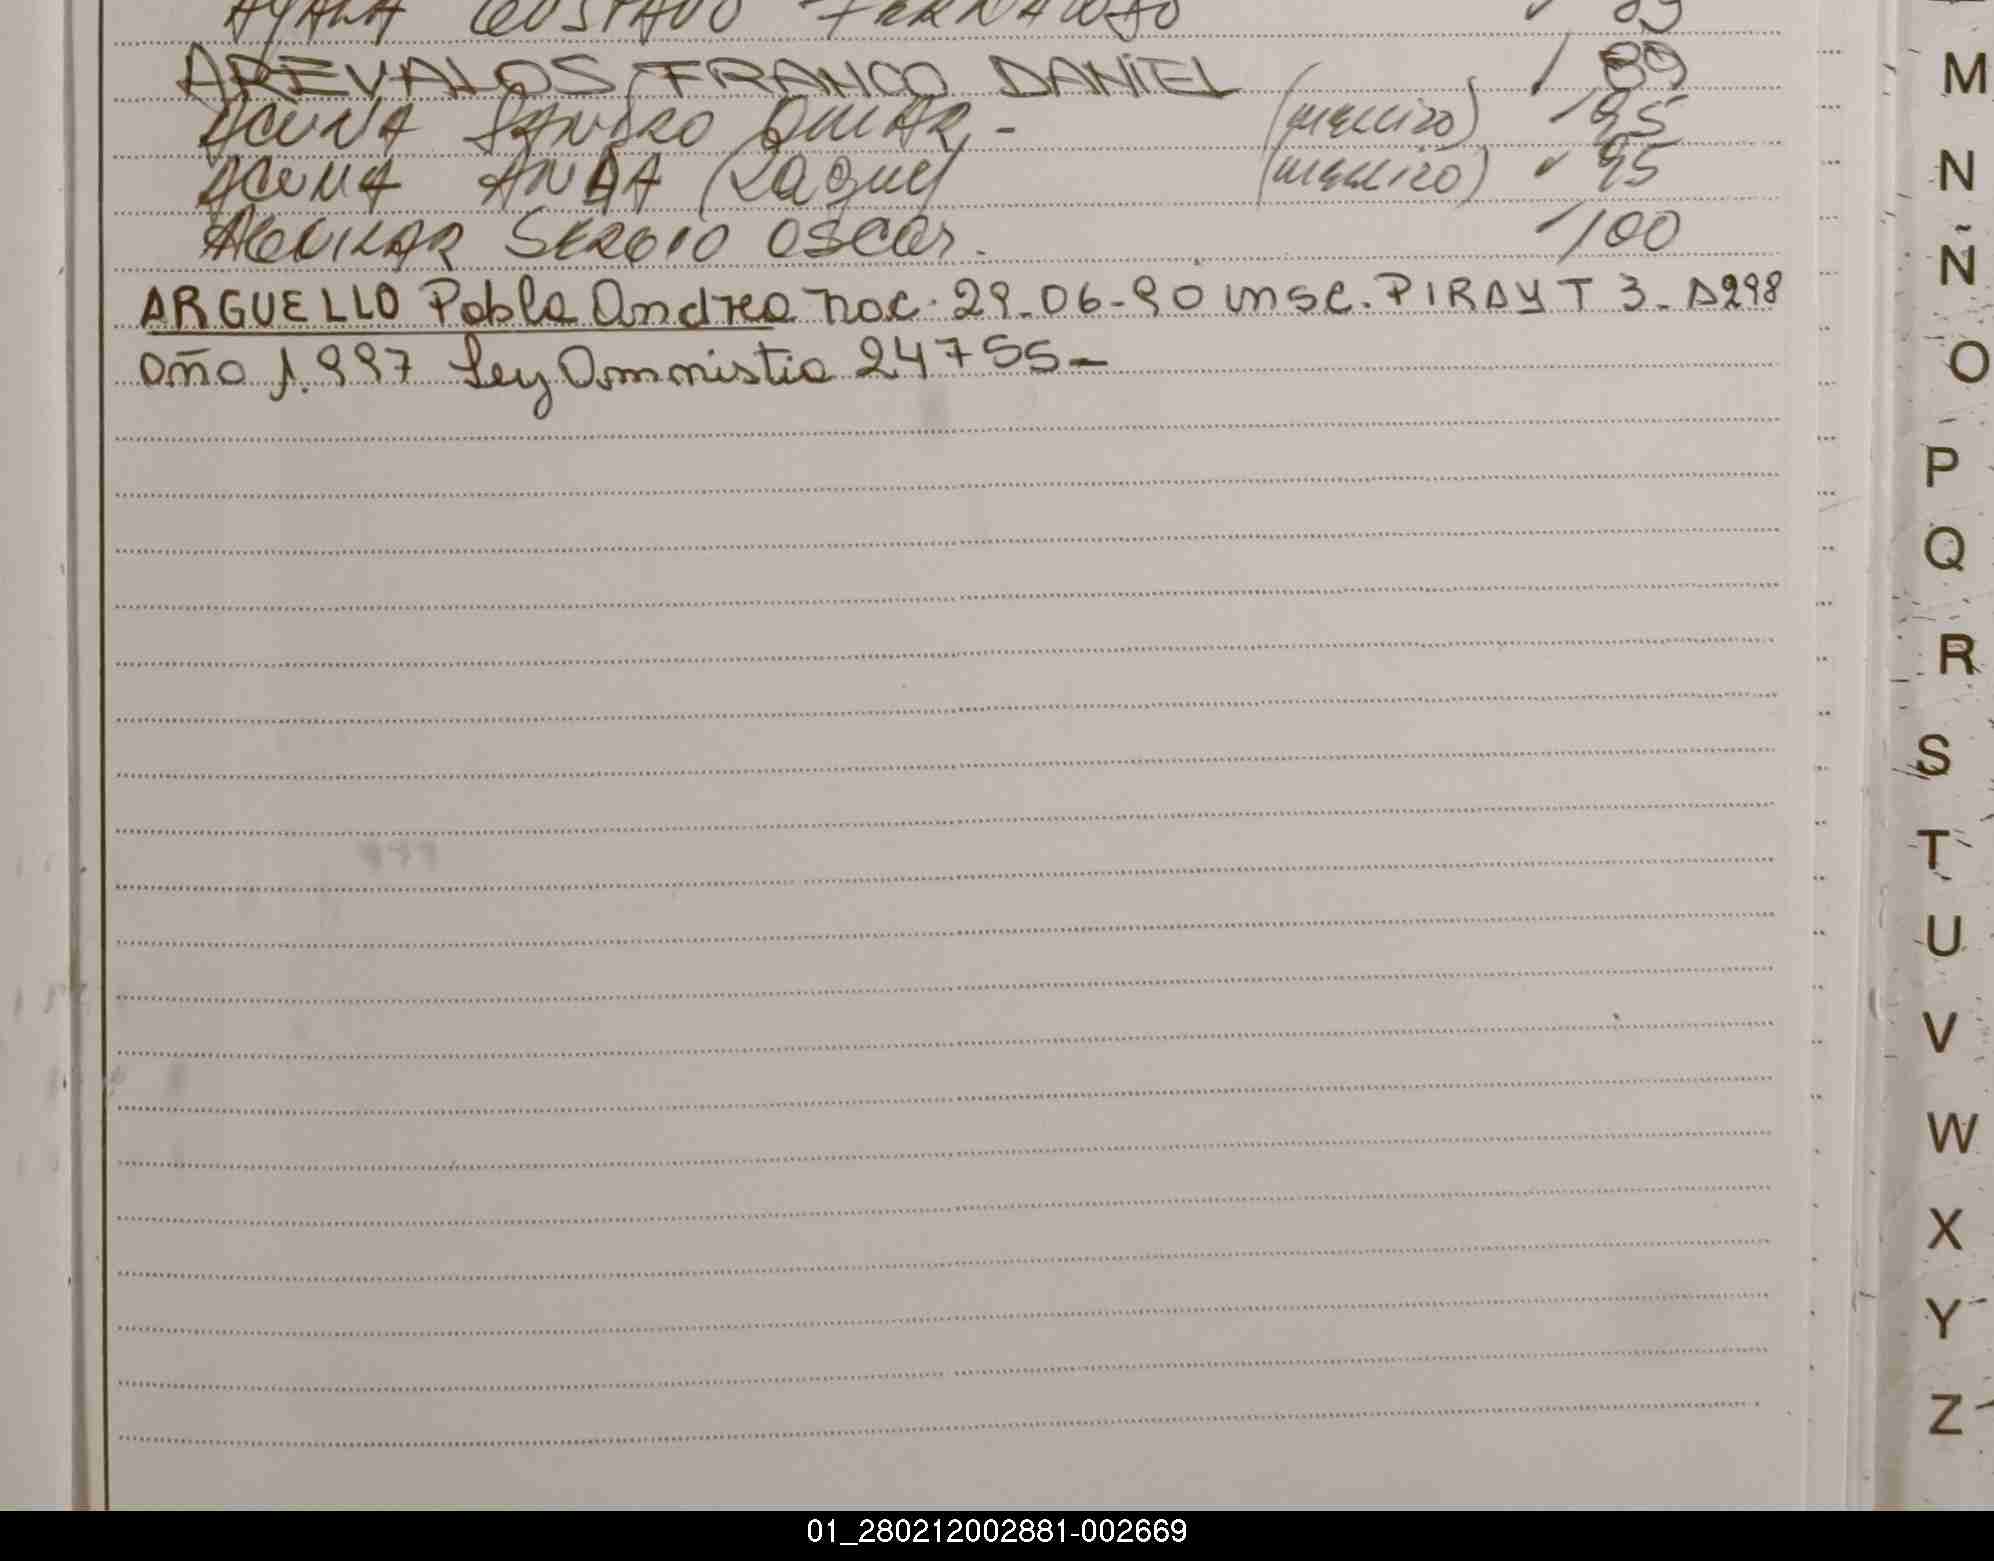 AYALA GUSTAVO FERNANDO 89
AREVALOS FRANCO DANIEL 89
ACUÑA SANDRO OMAR - (mellizo) 95
ACUÑA ANA Raquel (mellizo) 95
AGUILAR SERGIO OSCAR. 100
ARGUELLO Pablo Andres nac. 29-06-90 insc. PIRAY T 3. A298
año 1.997 Ley Amnistia 24755-
M
N
Ñ
O
P
Q
R
S
T
U
V
W
X
Y
Z
01_280212002881-002669